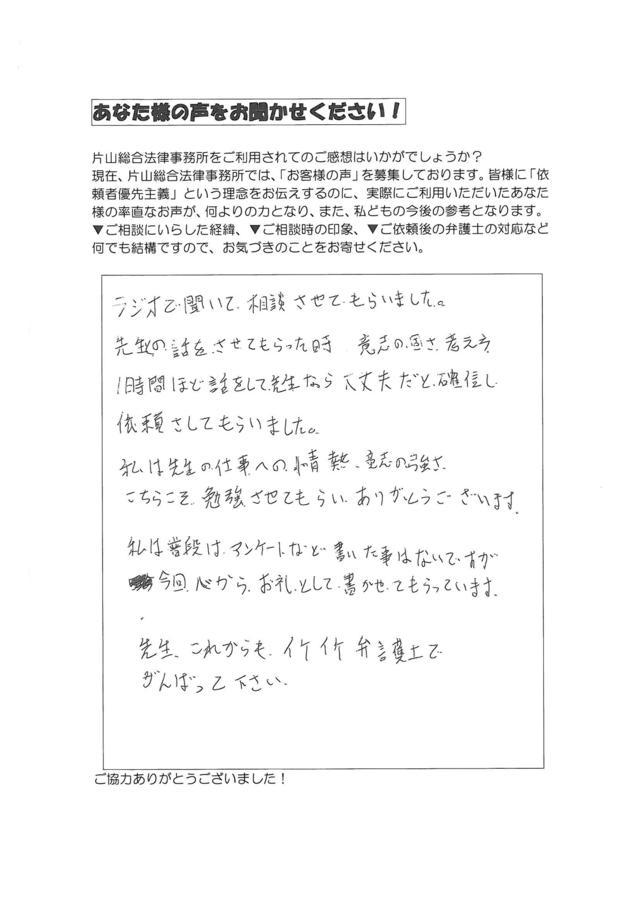 あなた様の声をお聞かせください！
片山総合法律事務所をご利用されてのご感想はいかがでしょうか？
現在、片山総合法律事務所では、「お客様の声」を募集しております。皆様に「依
頼者優先主義」という理念をお伝えするのに、実際にご利用いただいたあなた
様の率直なお声が、何よりの力となり、また、私どもの今後の参考となります。
▼ご相談にいらした経緯、▼ご相談時の印象、▼ご依頼後の弁護士の対応など
何でも結構ですので、お気づきのことをお寄せください。
ラジオで聞いて、相談させてもらいました。
先生の話をさせてもらった時 意志の固さ、考え方
1時間ほど話をして先生なら大丈夫だと、確信し
依頼さしてもらいました。
私は先生の仕事への情熱、意志の強さ
こちらこそ、勉強させてもらい、ありがとうございます。
私は普段は、アンケートなど書いた事はないですが
今回、心から、お礼として、書かせてもらっています。
先生、これからも、イケイケ弁護士で
がんばって下さい。
ご協力ありがとうございました！